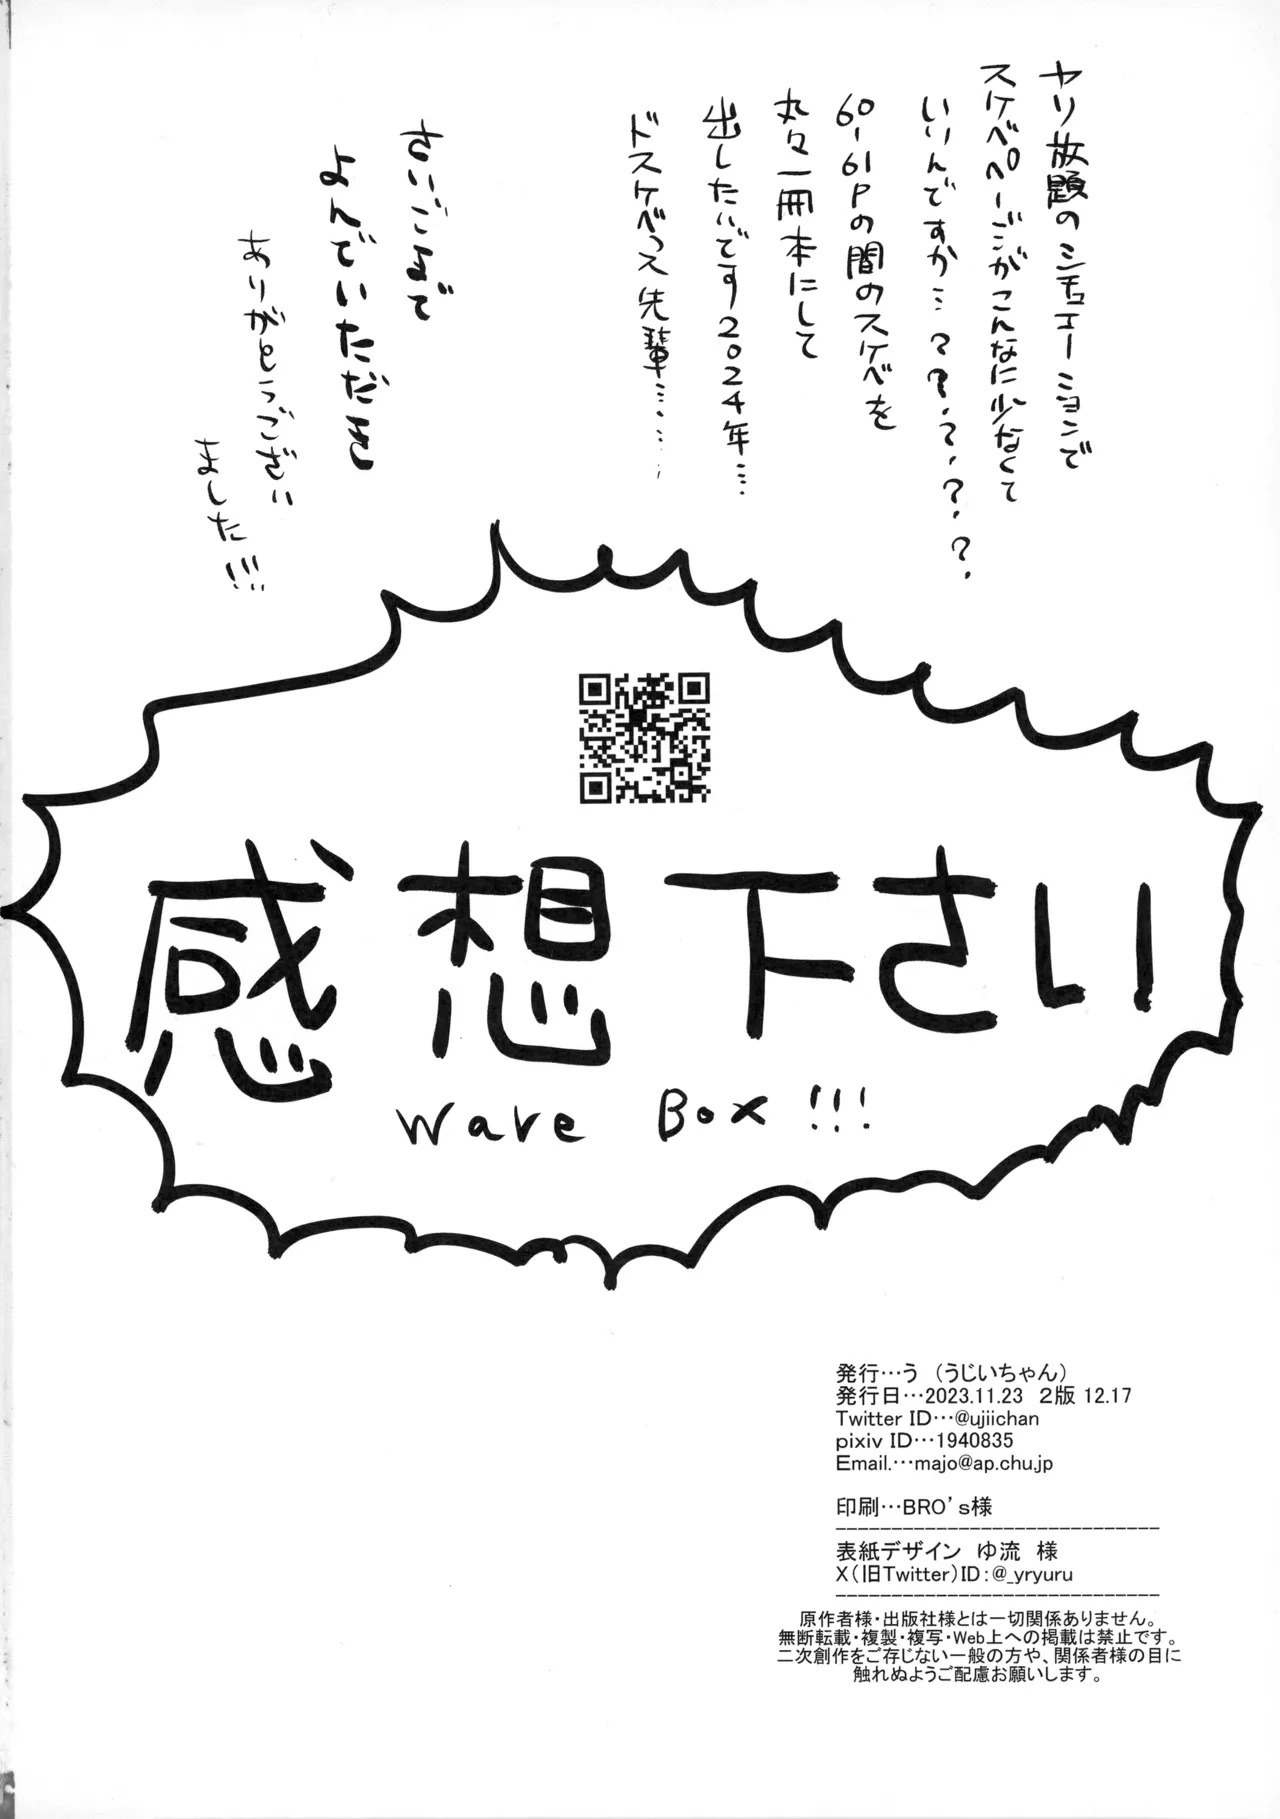 ヤリ放題のシチュエーションで
スケベページがこんなに少なくて
いいんですか…？？？？？？？
60-61Pの間のスケベを
丸々一冊本にして
出したいです2024年…
ドスケベっス先輩………
さいごまで
よんでいただき
ありがとうござい
ました!!!
感想下さい
wave Box!!!
発行…う（うじいちゃん）
発行日…2023.11.23　2版 12.17
Twitter ID…@ujiichan
pixiv ID…1940835
Email.…majo@ap.chu.jp
印刷…BRO's様
表紙デザイン　ゆ流　様
X（旧Twitter）ID：@_yryuru
原作者様・出版社様とは一切関係ありません。
無断転載・複製・複写・Web上への掲載は禁止です。
二次創作をご存じない一般の方や、関係者様の目に
触れぬようご配慮お願いします。